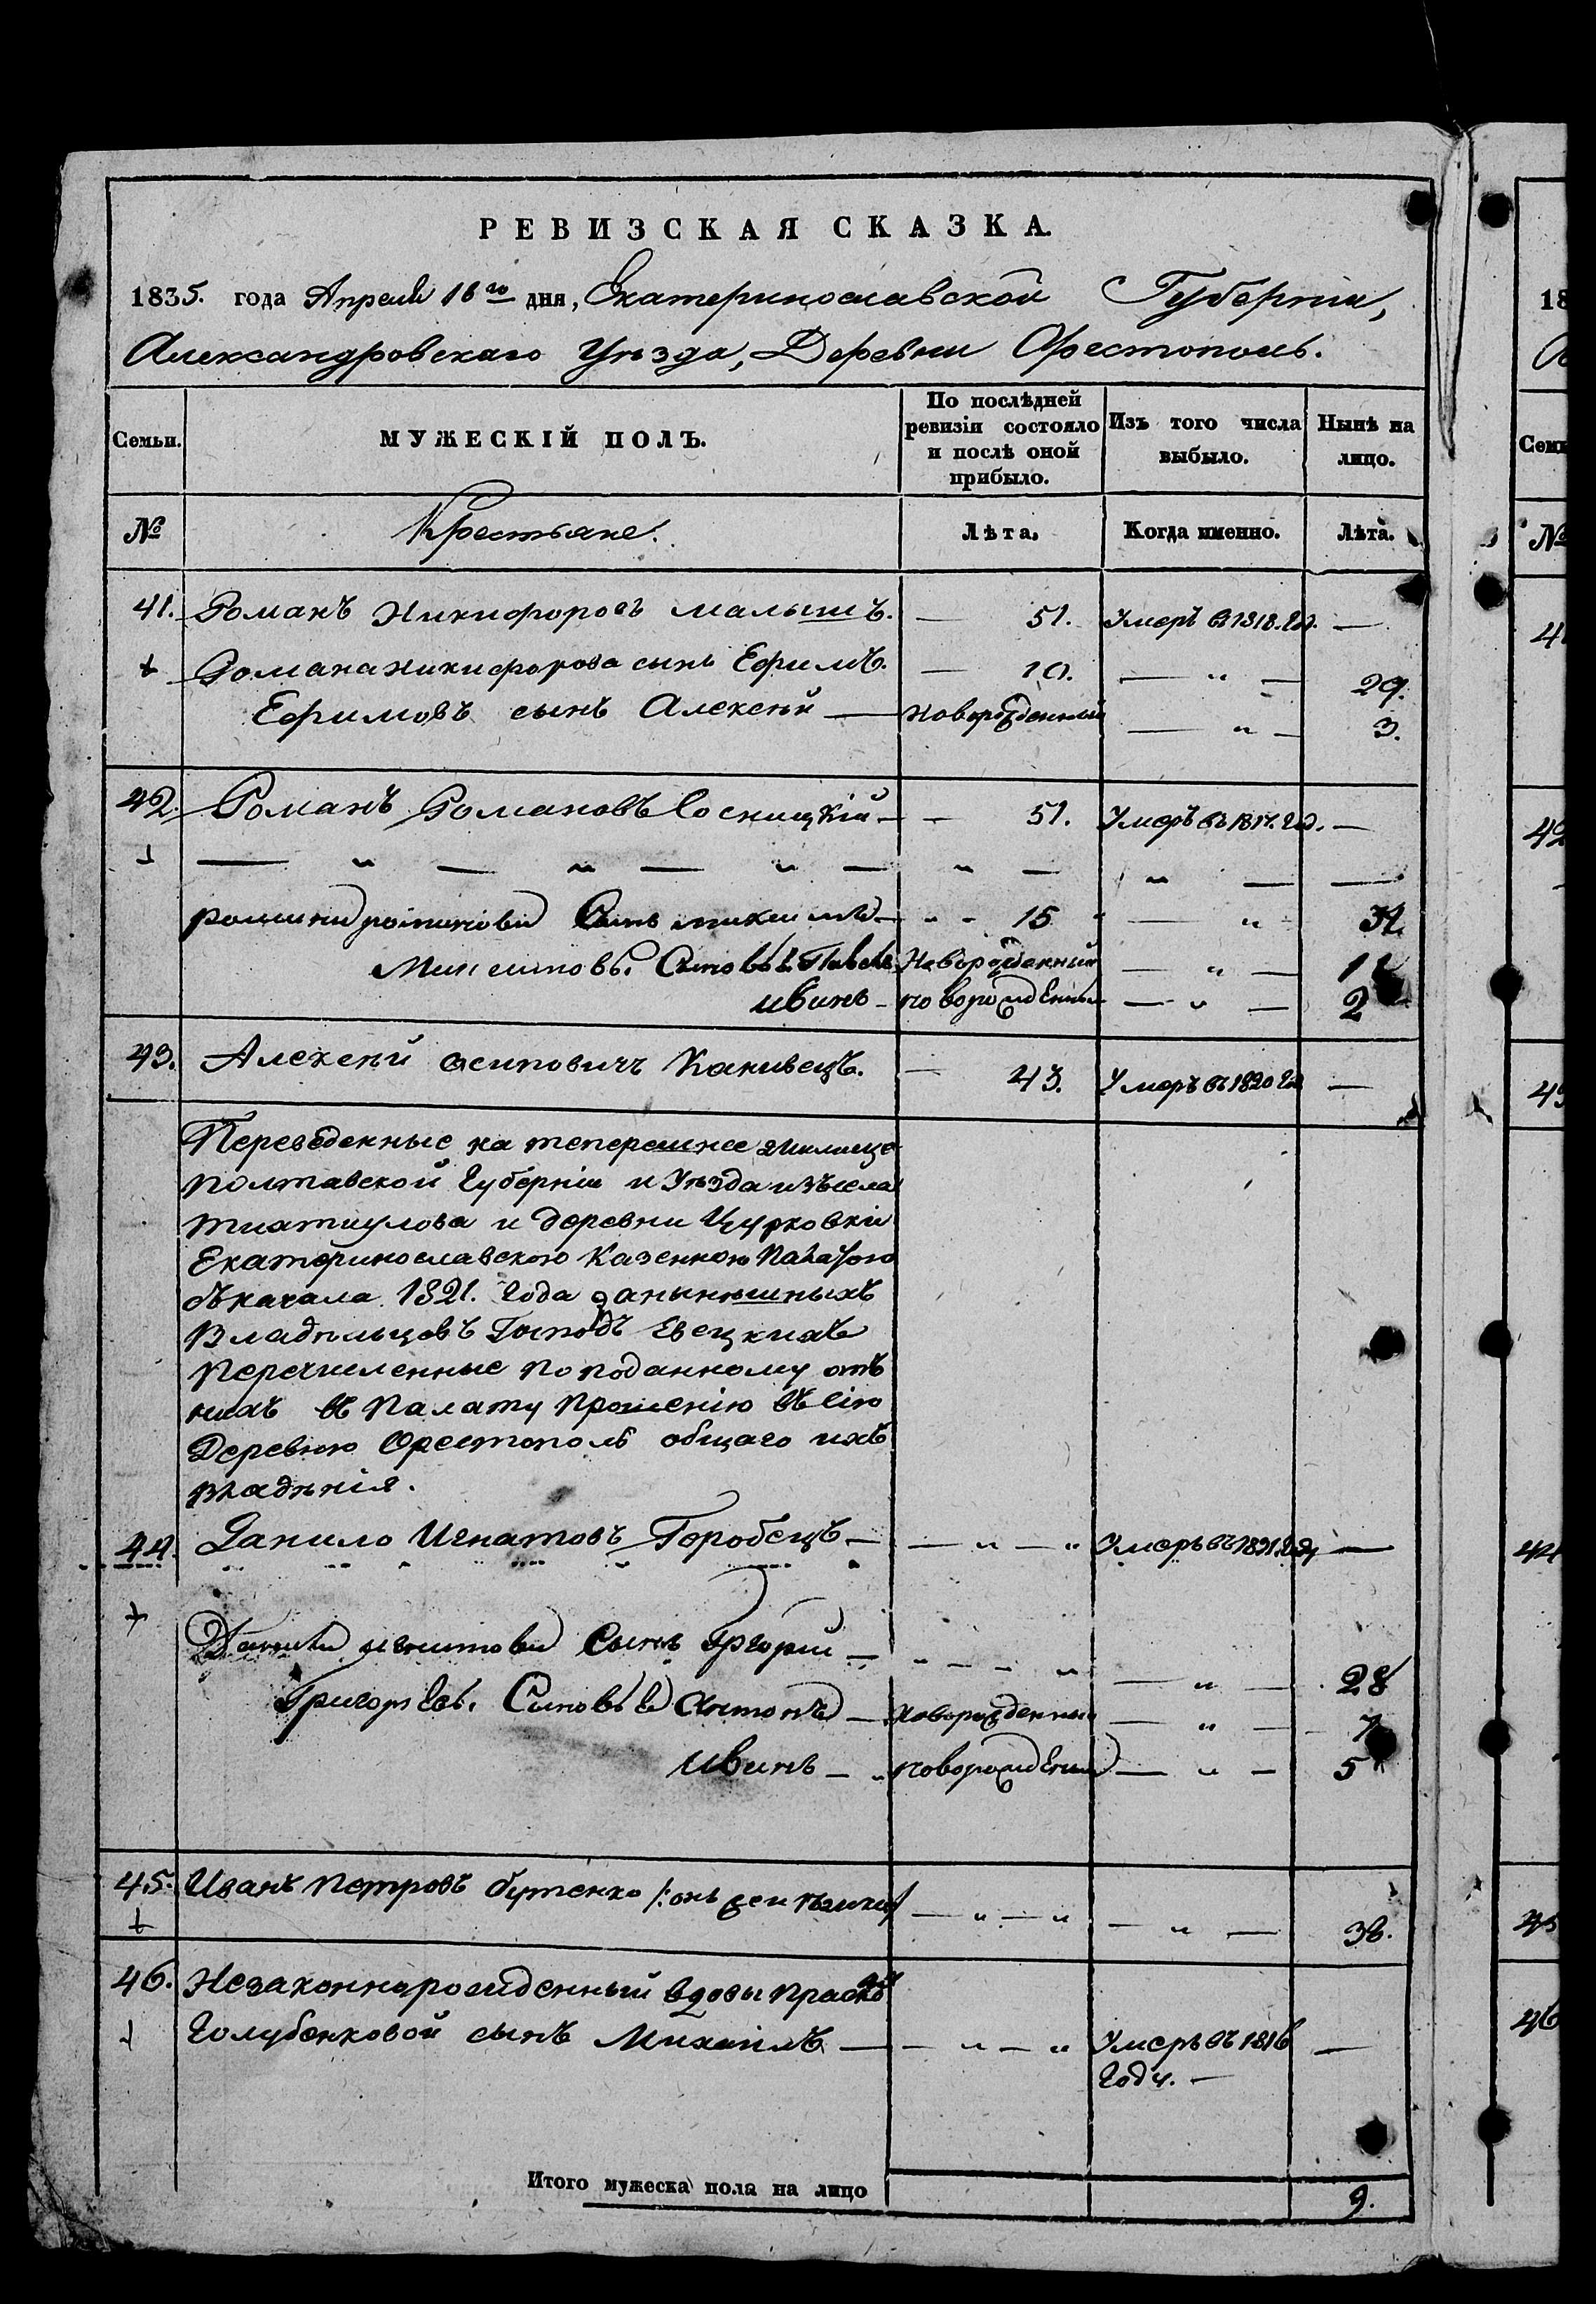 РЕВИЗСКАЯ СКАЗКА.
1835. года Апреля 16го дня, Екатеринославской Губерніи,
Александровскаго Уѣзда, Деревни Орестополь.
Семьи. МУЖЕСКІЙ ПОЛЪ. По послѣдней ревизіи состояло и послѣ оной прибыло. Изъ того числа выбыло. Нынѣ на лицо.
№ Крестьяне. Лѣта. Когда именно. Лѣта.
41. Романъ Никифоровъ Малышъ. — 51. Умеръ въ 1818. год. —
Романа Никифорова сынъ Ефимъ. — 10. — " — 29.
Ефимовъ сынъ Алексѣй — Новорожденный — " — 3.
42. Романъ Романовъ Сосницкій — — 51. Умеръ въ 1817. год. —
— " — " — " — " — " — —
Романа Романова Сынъ — " - 15 — "
Сыновья Павелъ Новорожденный — " —
Иванъ — новорожденный — " — 2
43. Алексѣй Осиповичъ Канивецъ. — 43. Умеръ въ 1820 год —
Переведенные на теперешнее жилище
Полтавской Губерніи и Уѣзда изъ села
и деревни
Екатеринославскою Казенною Палатою
съ начала 1821. года за нынѣшныхъ
Владѣльцовъ Господъ Евецкихъ
Перечисленные по поданному отъ
нихъ въ Палату Прошенію въ сію
Деревню Орестополь общаго ихъ
владѣнія.
44. Данило Игнатовъ Горобецъ — — " — " Умеръ въ 1831. год —
Данила Игнатова Сынъ Григорій — " — — " — " — 28
Григорьевы Сыновья Антонъ — Новорожденный — " — 7
Иванъ — новорожденный — " — 5
45. Иванъ Петровъ Бутенко /: онъ же — " — " — " — 38.
46. Незаконнорожденный вдовы
Голубенковой сынъ Михаилъ — — " — " Умеръ въ 1816 —
Году. —
Итого мужеска пола на лицо 9.
18
Семь
№
41
42
43
44
45
46